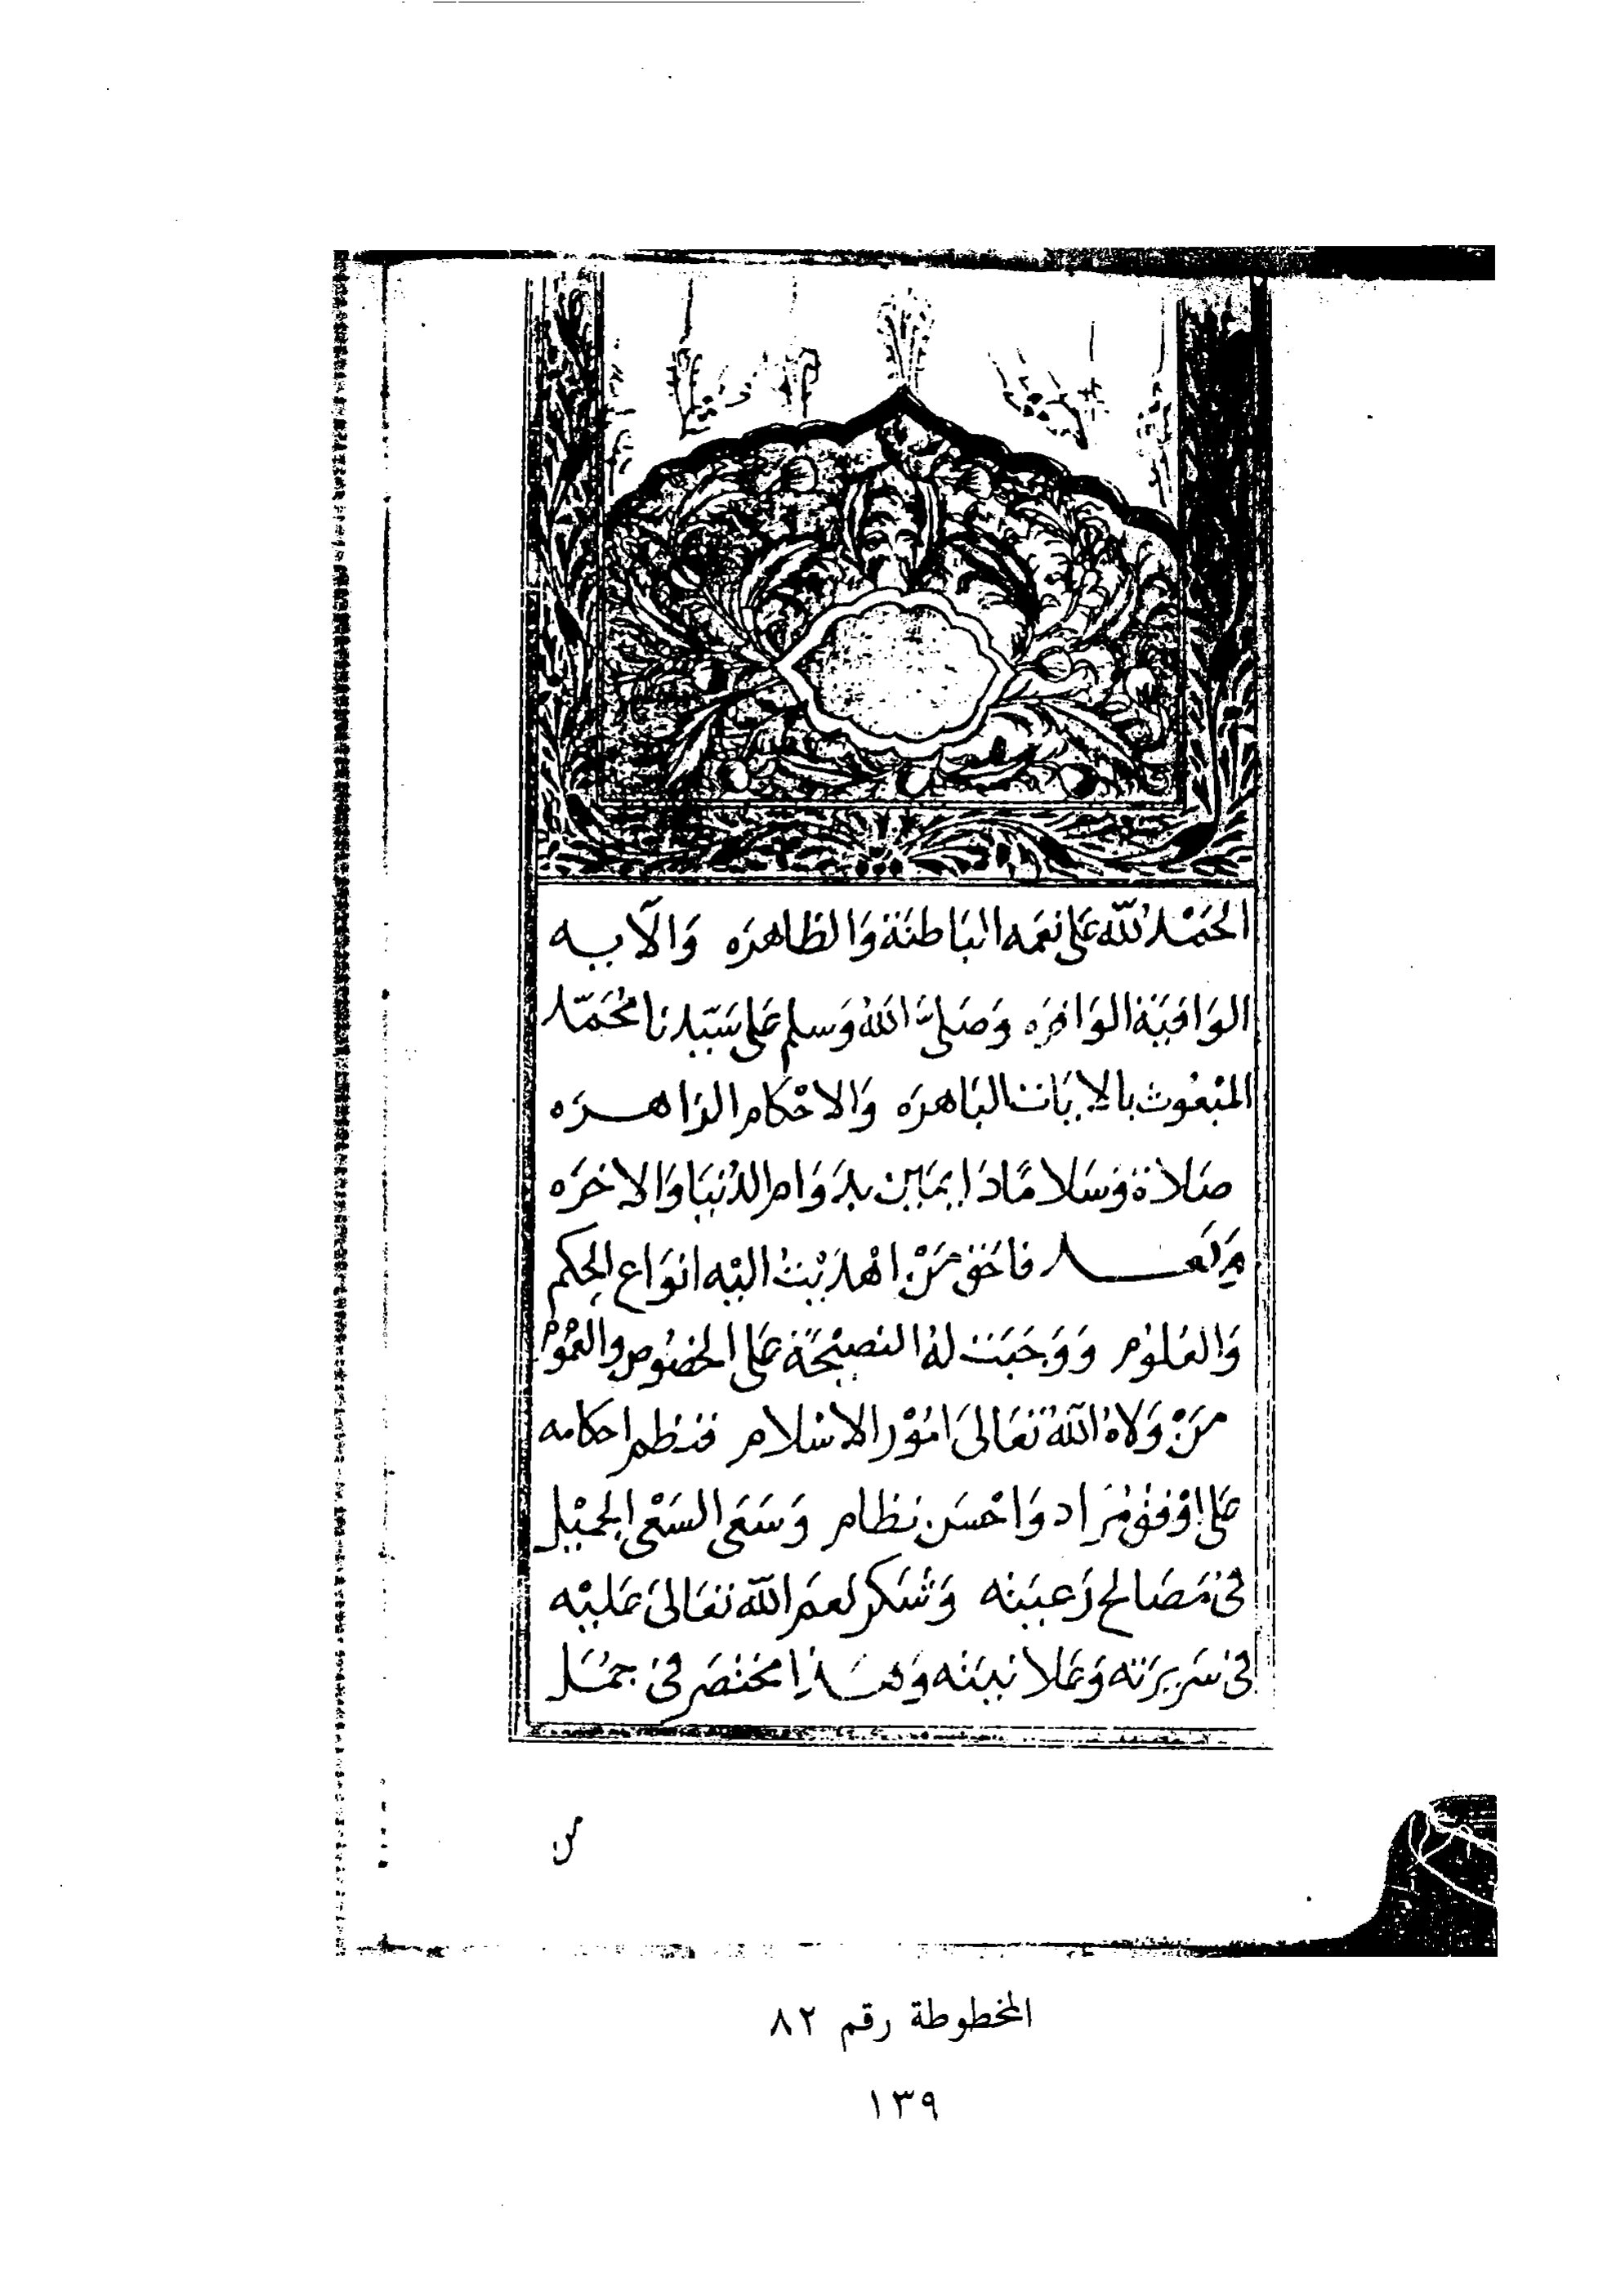 الحَمْدُ للّه عَلى نعَمه البَاطنَة وَالظاهرَه وَالآيه
الوَافيَة الوَافرَه وَصَلى اللهُ وَسلم عَلى سَيّدنا مُحَمّد
المبْعُوث بالايَات البَاهرَه وَالاحْكام الزاهرَه
صَلاة وَسَلامًا دَايمَين بدَوَام الدُنيَا وَالاخرَه
وَبَعد فاحَق مَنْ اهْديْتُ اليْه انوَاع الحِكم
وَالعُلوُم وَوَجَبَت لهُ النصيْحَة عَلى الخصُوص والعمُوم
مَنْ وَلاهُ اللّه تعَالىَ امُوْر الاسْلام فنظم احكامه
عَلى اوْفق مُرَاد وَاحْسَن نظام وَسَعَى السَعْى الجميْل
فى مَصَالح رَعيَته وَشكر نعَم اللّه تعَالىَ عَليْه
فى سَريرَته وَعَلانيَته وَهَذا مختصَر فى جمَل
من
المخطوطة رقم ٨٢
١٣٩